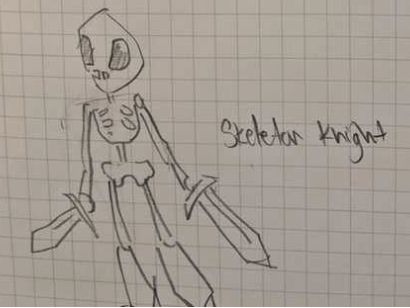 Skeleton Knight